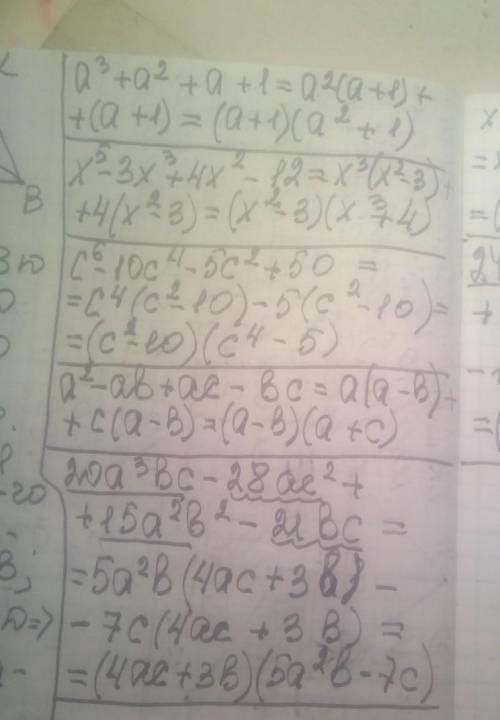 a³ + a² + a + 1 = a²(a+1) +
+ (a+1) = (a+1)(a² + 1)
x⁵ - 3x³ + 4x² - 12 = x³(x² - 3) +
+ 4(x² - 3) = (x² - 3)(x³ + 4)
c⁶ - 10c⁴ - 5c² + 50 =
= c⁴(c² - 10) - 5(c² - 10) =
= (c² - 10)(c⁴ - 5)
a² - ab + ac - bc = a(a - b) +
+ c(a - b) = (a - b)(a + c)
20a³bc - 28ac² +
+ 15a²b² - 21bc =
= 5a²b(4ac + 3b) -
- 7c(4ac + 3b) =
= (4ac + 3b)(5a²b - 7c)
B